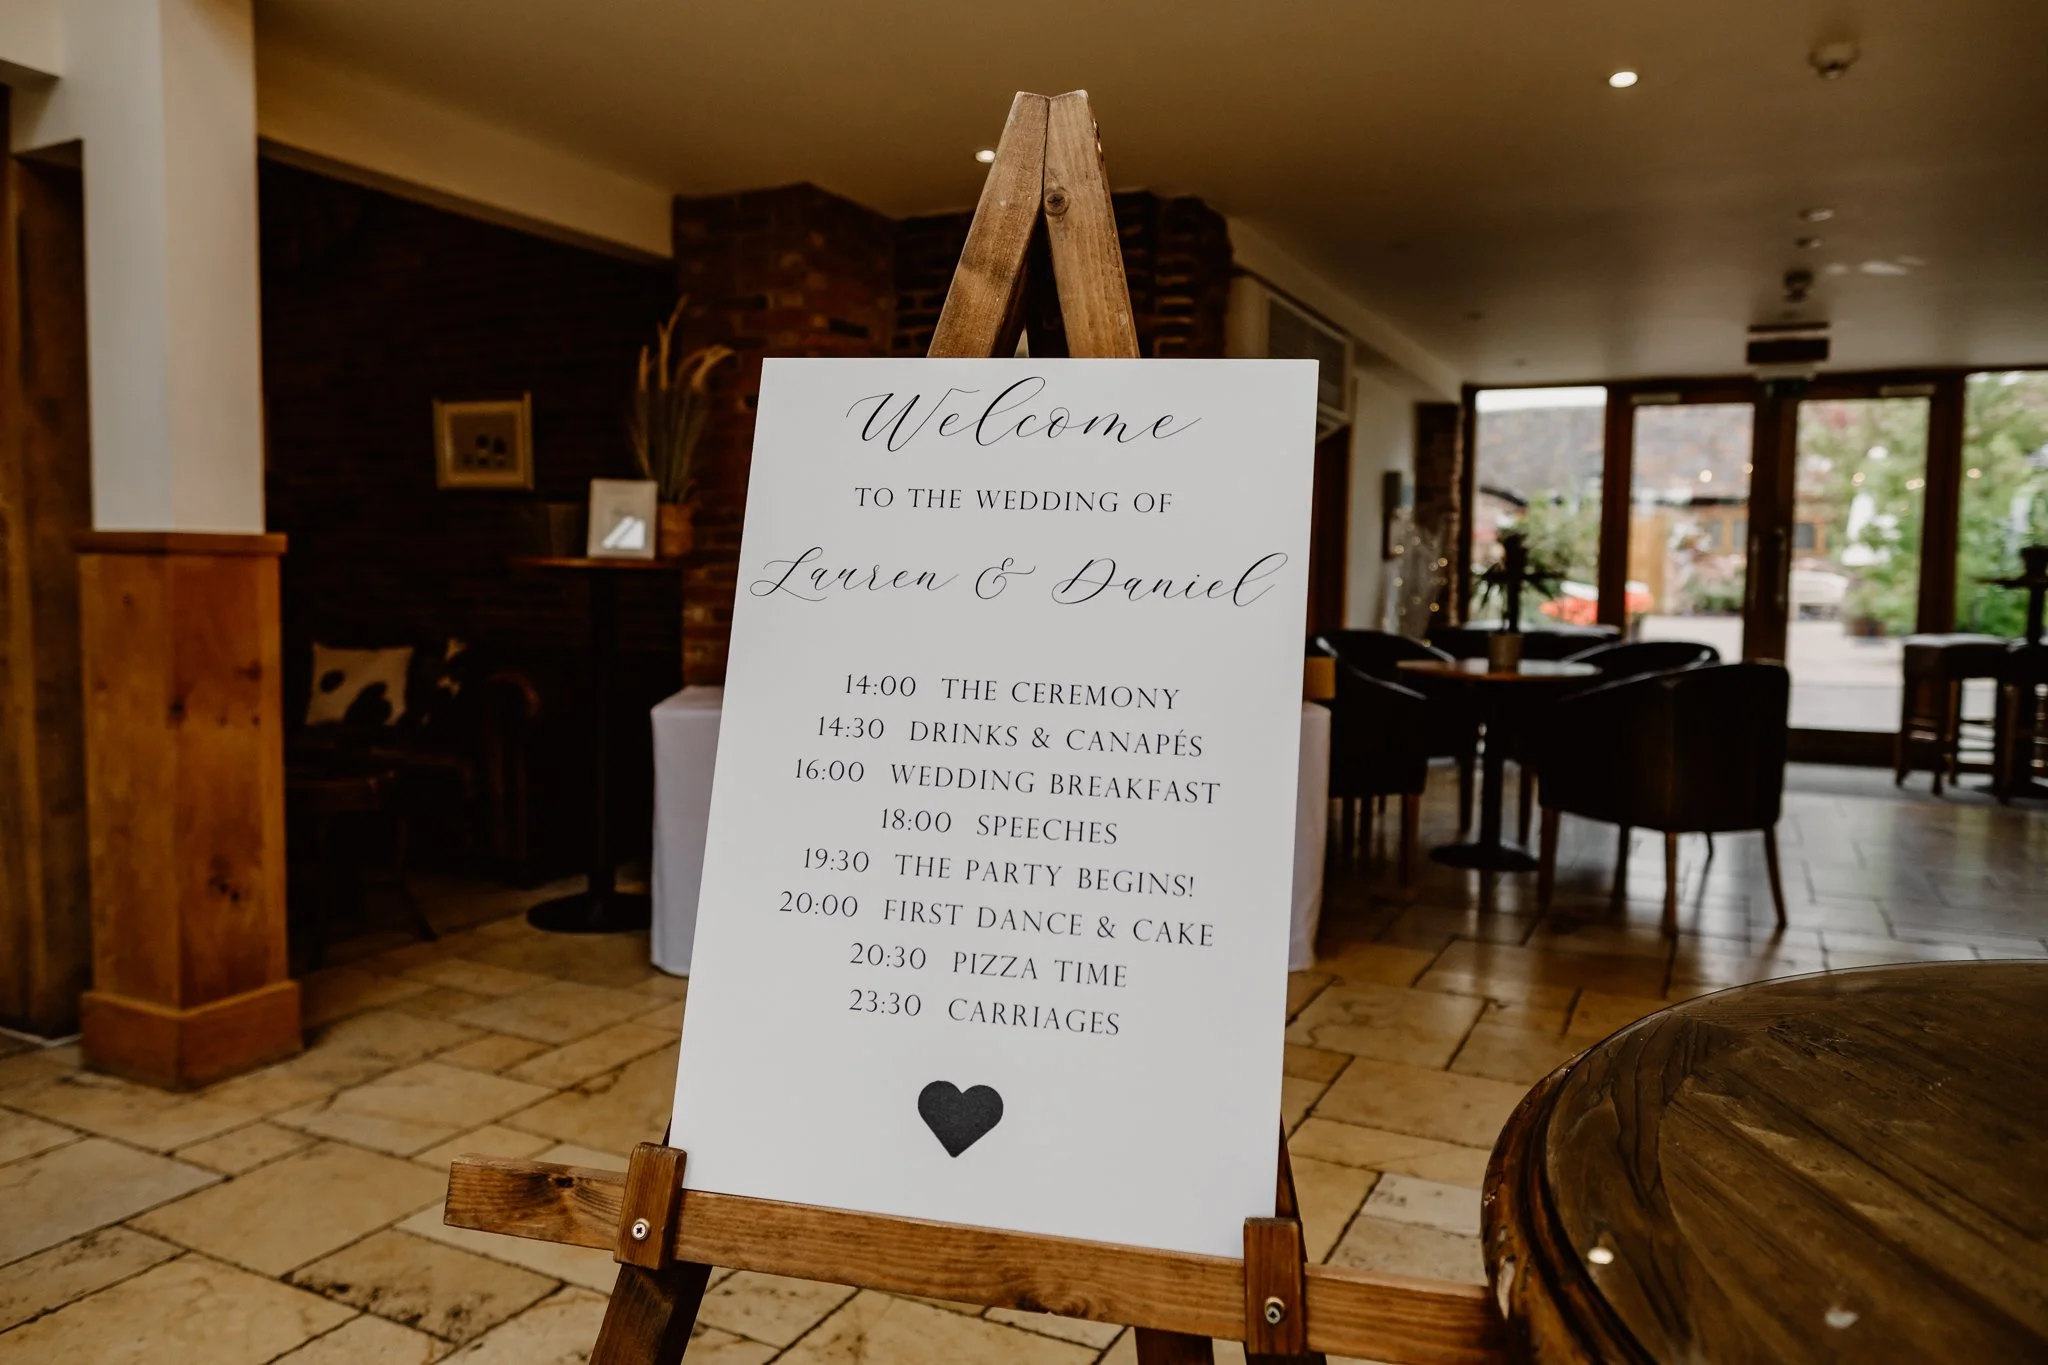 Welcome
TO THE WEDDING OF
Lauren & Daniel
14:00 THE CEREMONY
14:30 DRINKS & CANAPÉS
16:00 WEDDING BREAKFAST
18:00 SPEECHES
19:30 THE PARTY BEGINS!
20:00 FIRST DANCE & CAKE
20:30 PIZZA TIME
23:30 CARRIAGES